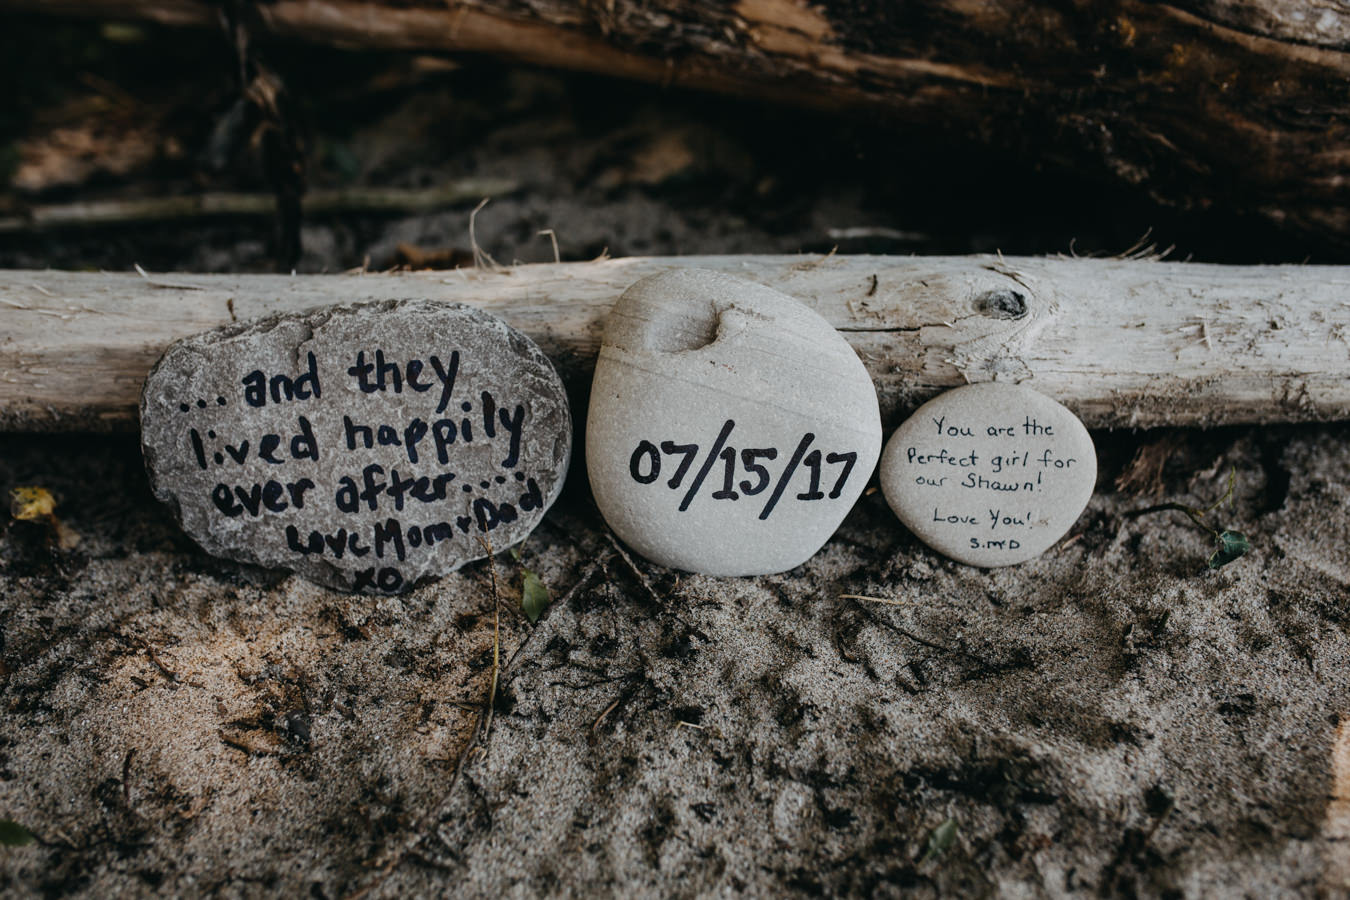 ... and they
lived happily
ever after....
Love Mom + Dad
XO
07/15/17
You are the
Perfect girl for
our Shawn!
Love You!
S.M+D